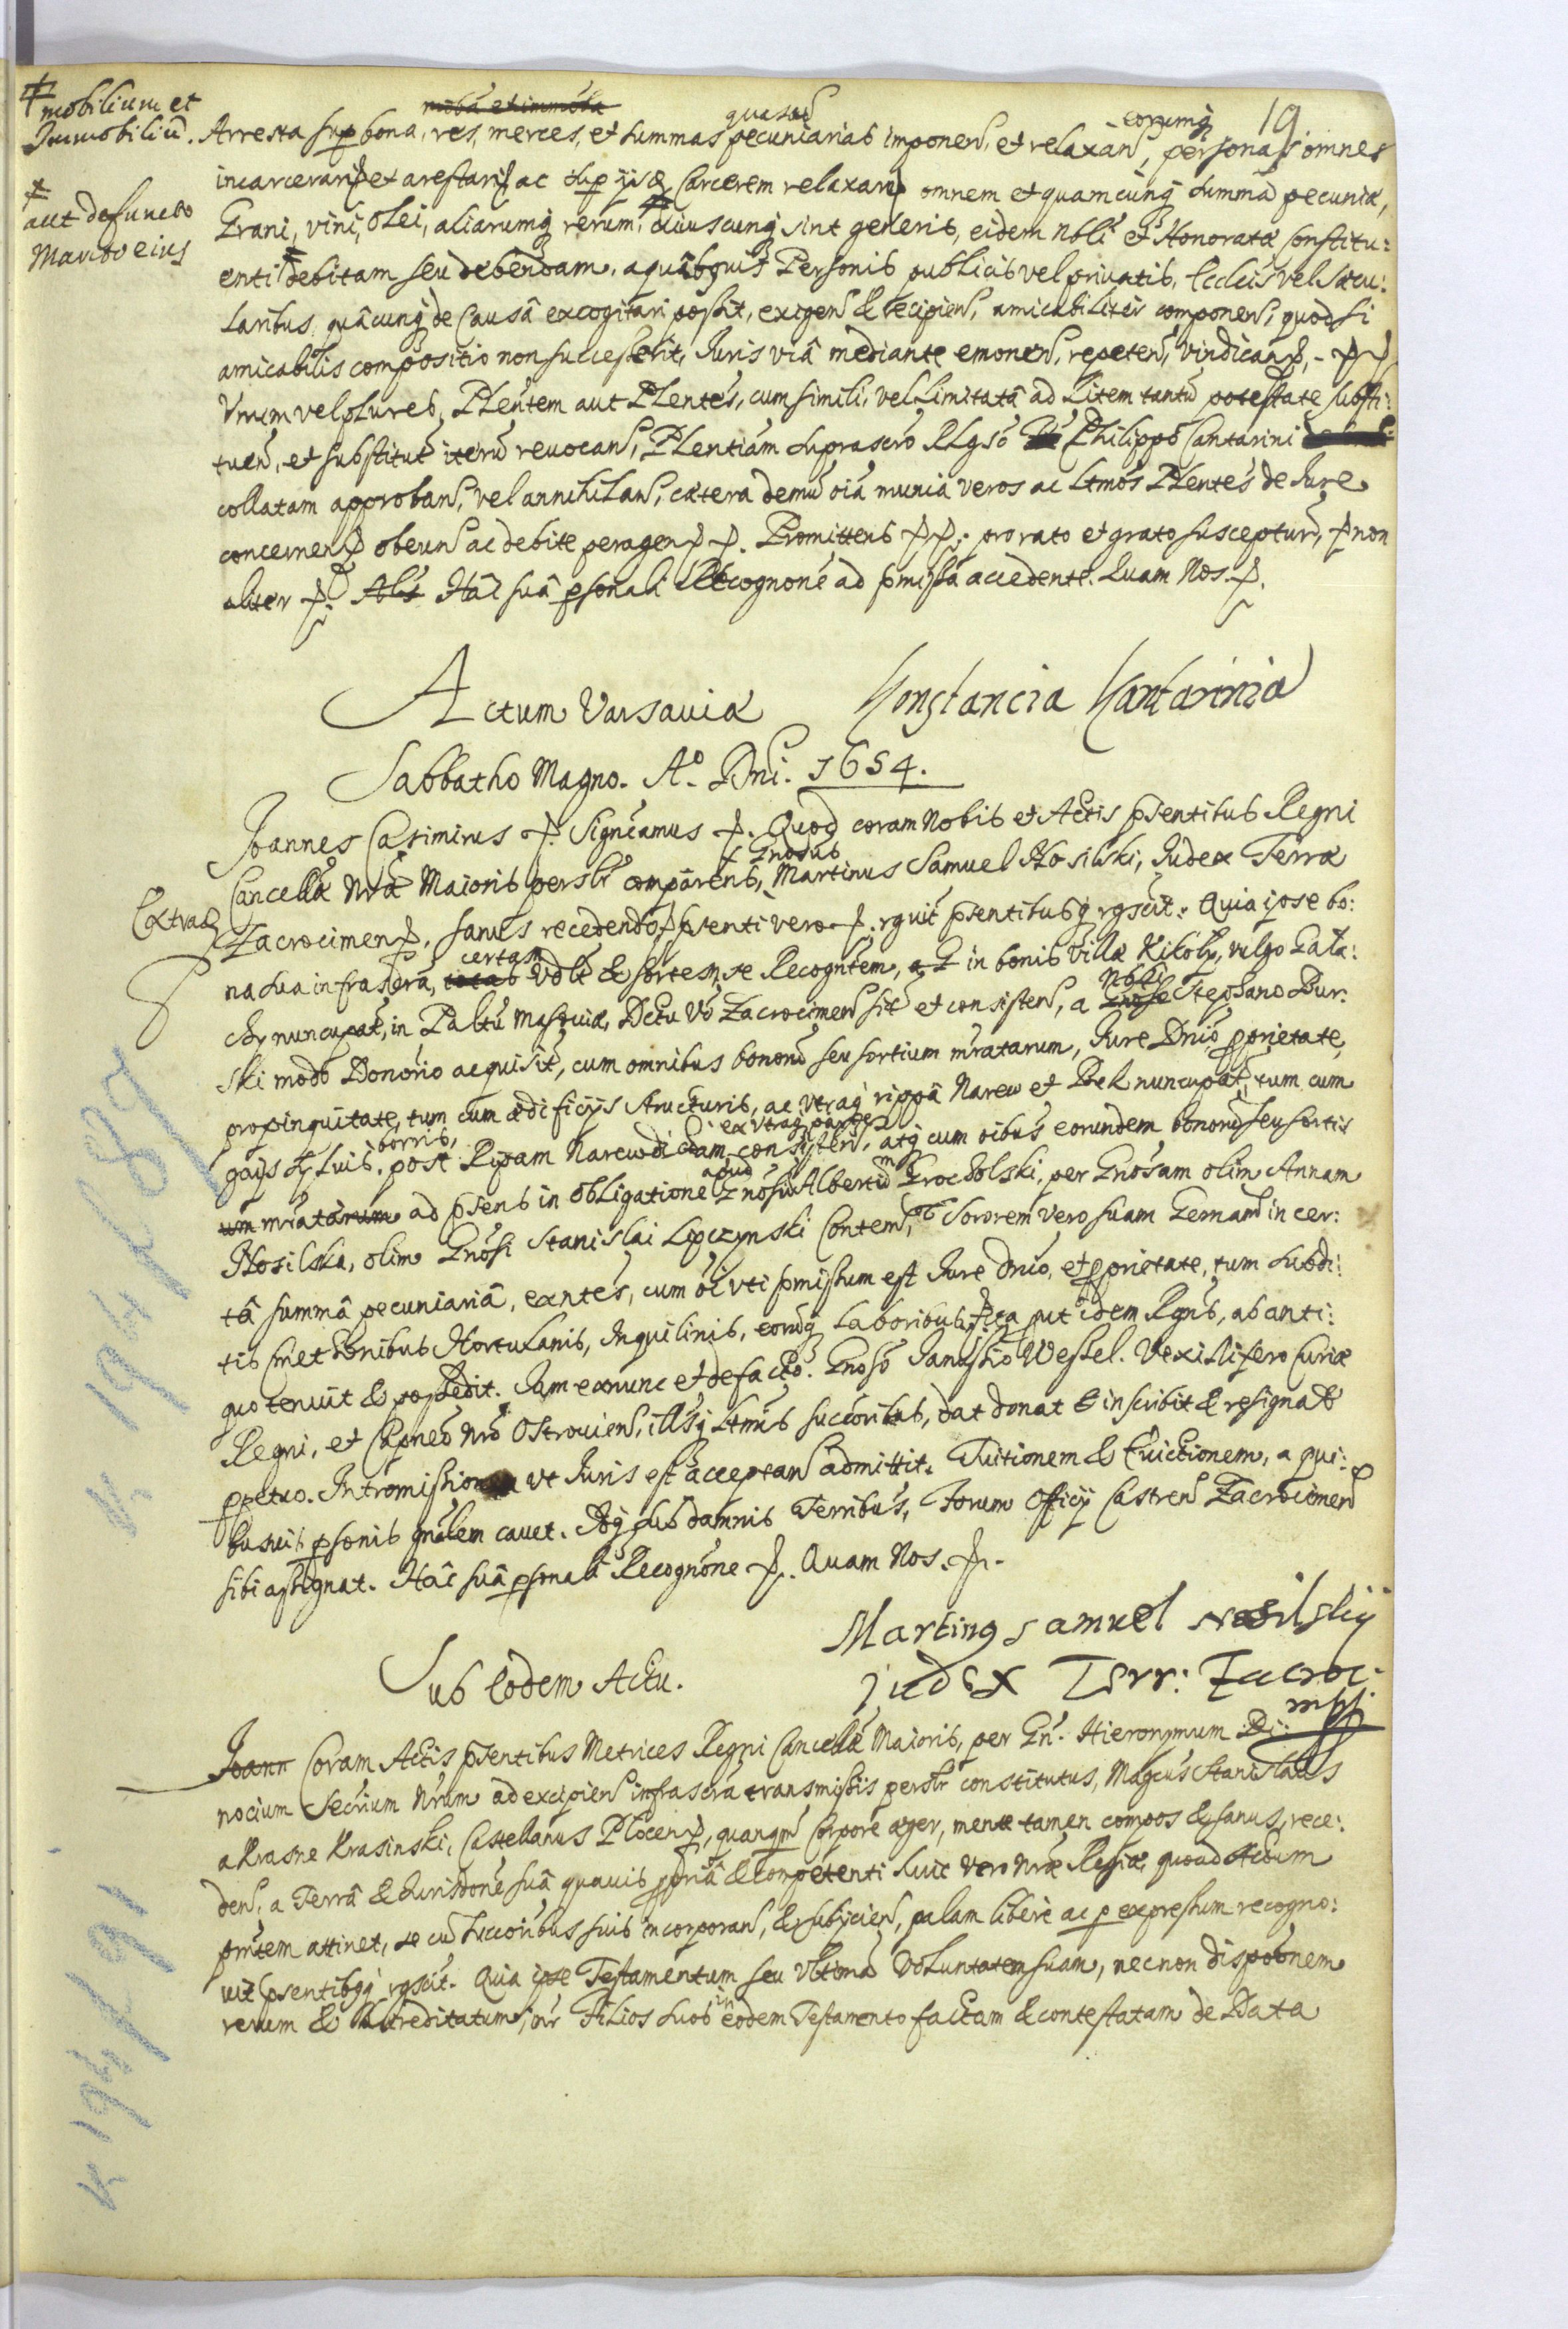 19
mobilium et
Immobiliū.
Arresta sup bona, res, merces, et summas quasuis pecuniarias imponen, et relaxan, eorumq personas omnes
incarcerari et arestari ac sup ijs Carcerem relaxari omnem et quamcunq summā pecuniæ,
aut defuncto
Marito eius
Grani, vini, olei, aliarumq rerum, cuiuscunq sint generis, eidem Nbli et Honoratæ Constitu:
enti debitam seu debendam, a quibusuis Personis publicis vel priuatis, Ecclcis vel Sæcu:
laribus, quâcunq de Causâ excogitari possit, exigen & recipien, amicabiliter componen, quod si
amicabilis compositio non successerit, Iuris viâ mediante emonen, repeten, vindican,
Vnum vel plures, Plentem aut Plentes, cum simili, vel limitatâ ad Litem tantū potestate substi:
tuen, et substitut iterū reuocan, Plentiam suprascro Rlgso Philippo Cantarini
collatam approban, vel annihilan, cætera demū oia munia veros ac Ltmos Plentes de Iure
concernen obeun ac debite peragen. Promittens pro rato et grato susceptur, non
aliter. Hâc suâ psonali Recognone ad pmissa accedente. Quam Nos.
Actum Varsauiæ
Konstancia Kantarinia
Sabbatho Magno. A° Dni. 1654.
Ioannes Casimirus. Signcamus. Quod coram Nobis et Actis psentibus Regni
Cancellæ Nræ Maioris perslr comparens, Gnosus Martinus Samuel Nosilski, Iudex Terræ
Extrad
Zacrocimen, sanus recedendo, psenti vero. rguit psentibusq rgscit. Quia ipse bo:
na sua infrascra, certam & sortem, se Recogntem, in bonis Villæ Kikoły, vulgo Gała:
chy nuncupat, in Paltu Masouiæ, Dctu Vo Zacrocimen sit et consisten, a Nbli Stephano Dur:
ski modo Donorio acquisit, cum omnibus bonorū seu sortium mratarum, Iure Dnio pprietate,
propinquitate, tum cum ædificijs structuris, ac vtraq rippâ Narew et Bek nuncupat, tum cum
borris,
ex vtraq parte
post Ripam Narew dictam consisten, atq cum oibus eorundem bonorū seu sortis
mratarum ad psens in obligatione apud Gnosum Albertum Grodolski, per Gnosam olim Annam
Nosilska, olim Gnosi Stanislai Lipczynski Contem, Sororem vero suam Germanā in cer:
tâ summâ pecuniariâ, exntes, cum oi vti pmissum est Iure dnio, et pprietate, tum subdi:
tis Cmethonibus Hortulanis, Inquilinis, eorūq Laboribus, ita put idem Rgns, ab anti:
quo tenuit & possedit. Iam exnunc et de facto. Gnoso Ianussio Wessel. Vexillifero Curiæ
Regni, et Capneo Nro Ostrouien, illsq Ltmis succoribus, dat donat & inscribit & resignat
ppetuo. Intromissionem vt Iuris est acceptan admittit. Tuitionem & Euictionem, a qui:
busuis psonis gnalem cauet. Atq sub damnis Terribus, Forum Officij Castren Zacrocimen
sibi assignat. Hâc suâ psonali Recognone. Quam Nos.
Martinq Samuel Nosilskij
Judex Terr: Zacroc:
mpp.
Sub Eodem Actu.
Ioann Coram Actis psentibus Metrices Regni Cancellæ Maioris, per Gn. Hieronymum Pi:
nocium Secrium Nrum ad excipien infrascra transmissis perslr constitutus, Magcus Stanislaus
a Krasne Krasinski, Castellanus Plocen, quanqm Corpore æger, mente tamen compos & sanus, rece:
den, a Terrâ & Iurisdone suâ quauis ppriâ & competenti huic vero Nræ Regiæ, quoad Actum
pntem attinet, se cū succoribus suis incorporan, & subijcien, palam libere ac p expressum recogno:
uit psentibqq rgscit. Quia ipse Testamentum seu vltimā Voluntatem suam, necnon disponem
rerum & Hæreditatum, inr Filios suos in eodem Testamento factam & contestatam de Data
K 194 k 89
K 194 k 91